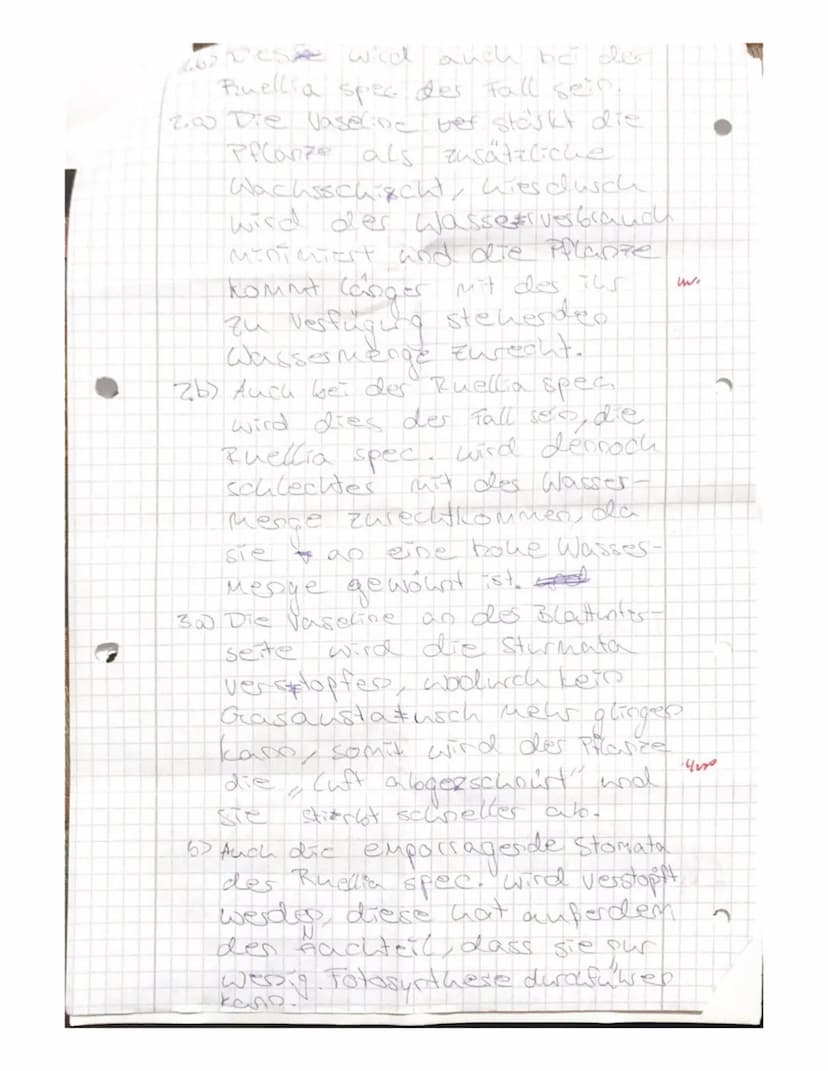 1.b) Dies wird auch bei der
Ruellia spec. der Fall sein.
2.a) Die Vaseline verstärkt die
Pflanze als zusätzliche
Wachsschicht, hierdurch
wird der Wasserverbrauch
minimiert und die Pflanze
kommt länger mit der ihr
zu Verfügung stehenden
Wassermenge zurecht.
2.b) Auch bei der Ruellia spec.
wird dies der Fall sein, die
Ruellia spec. wird dennoch
schlechter mit der Wasser-
menge zurechtkommen, da
sie an eine hohe Wasser-
menge gewöhnt ist.
3a) Die Vaseline an der Blattunter-
seite wird die Sturmata
verstopfen, wodurch kein
Gasaustausch mehr glingen
kann, somit wird der Pflanze
die "Luft abgeschnürt" und
sie stirbt schneller ab.
b) Auch die emporragende Stomata
der Ruellia spec. wird verstopft
werden, diese hat außerdem
den Nachteil, dass sie nur
wenig Fotosynthese durchführen
kann.